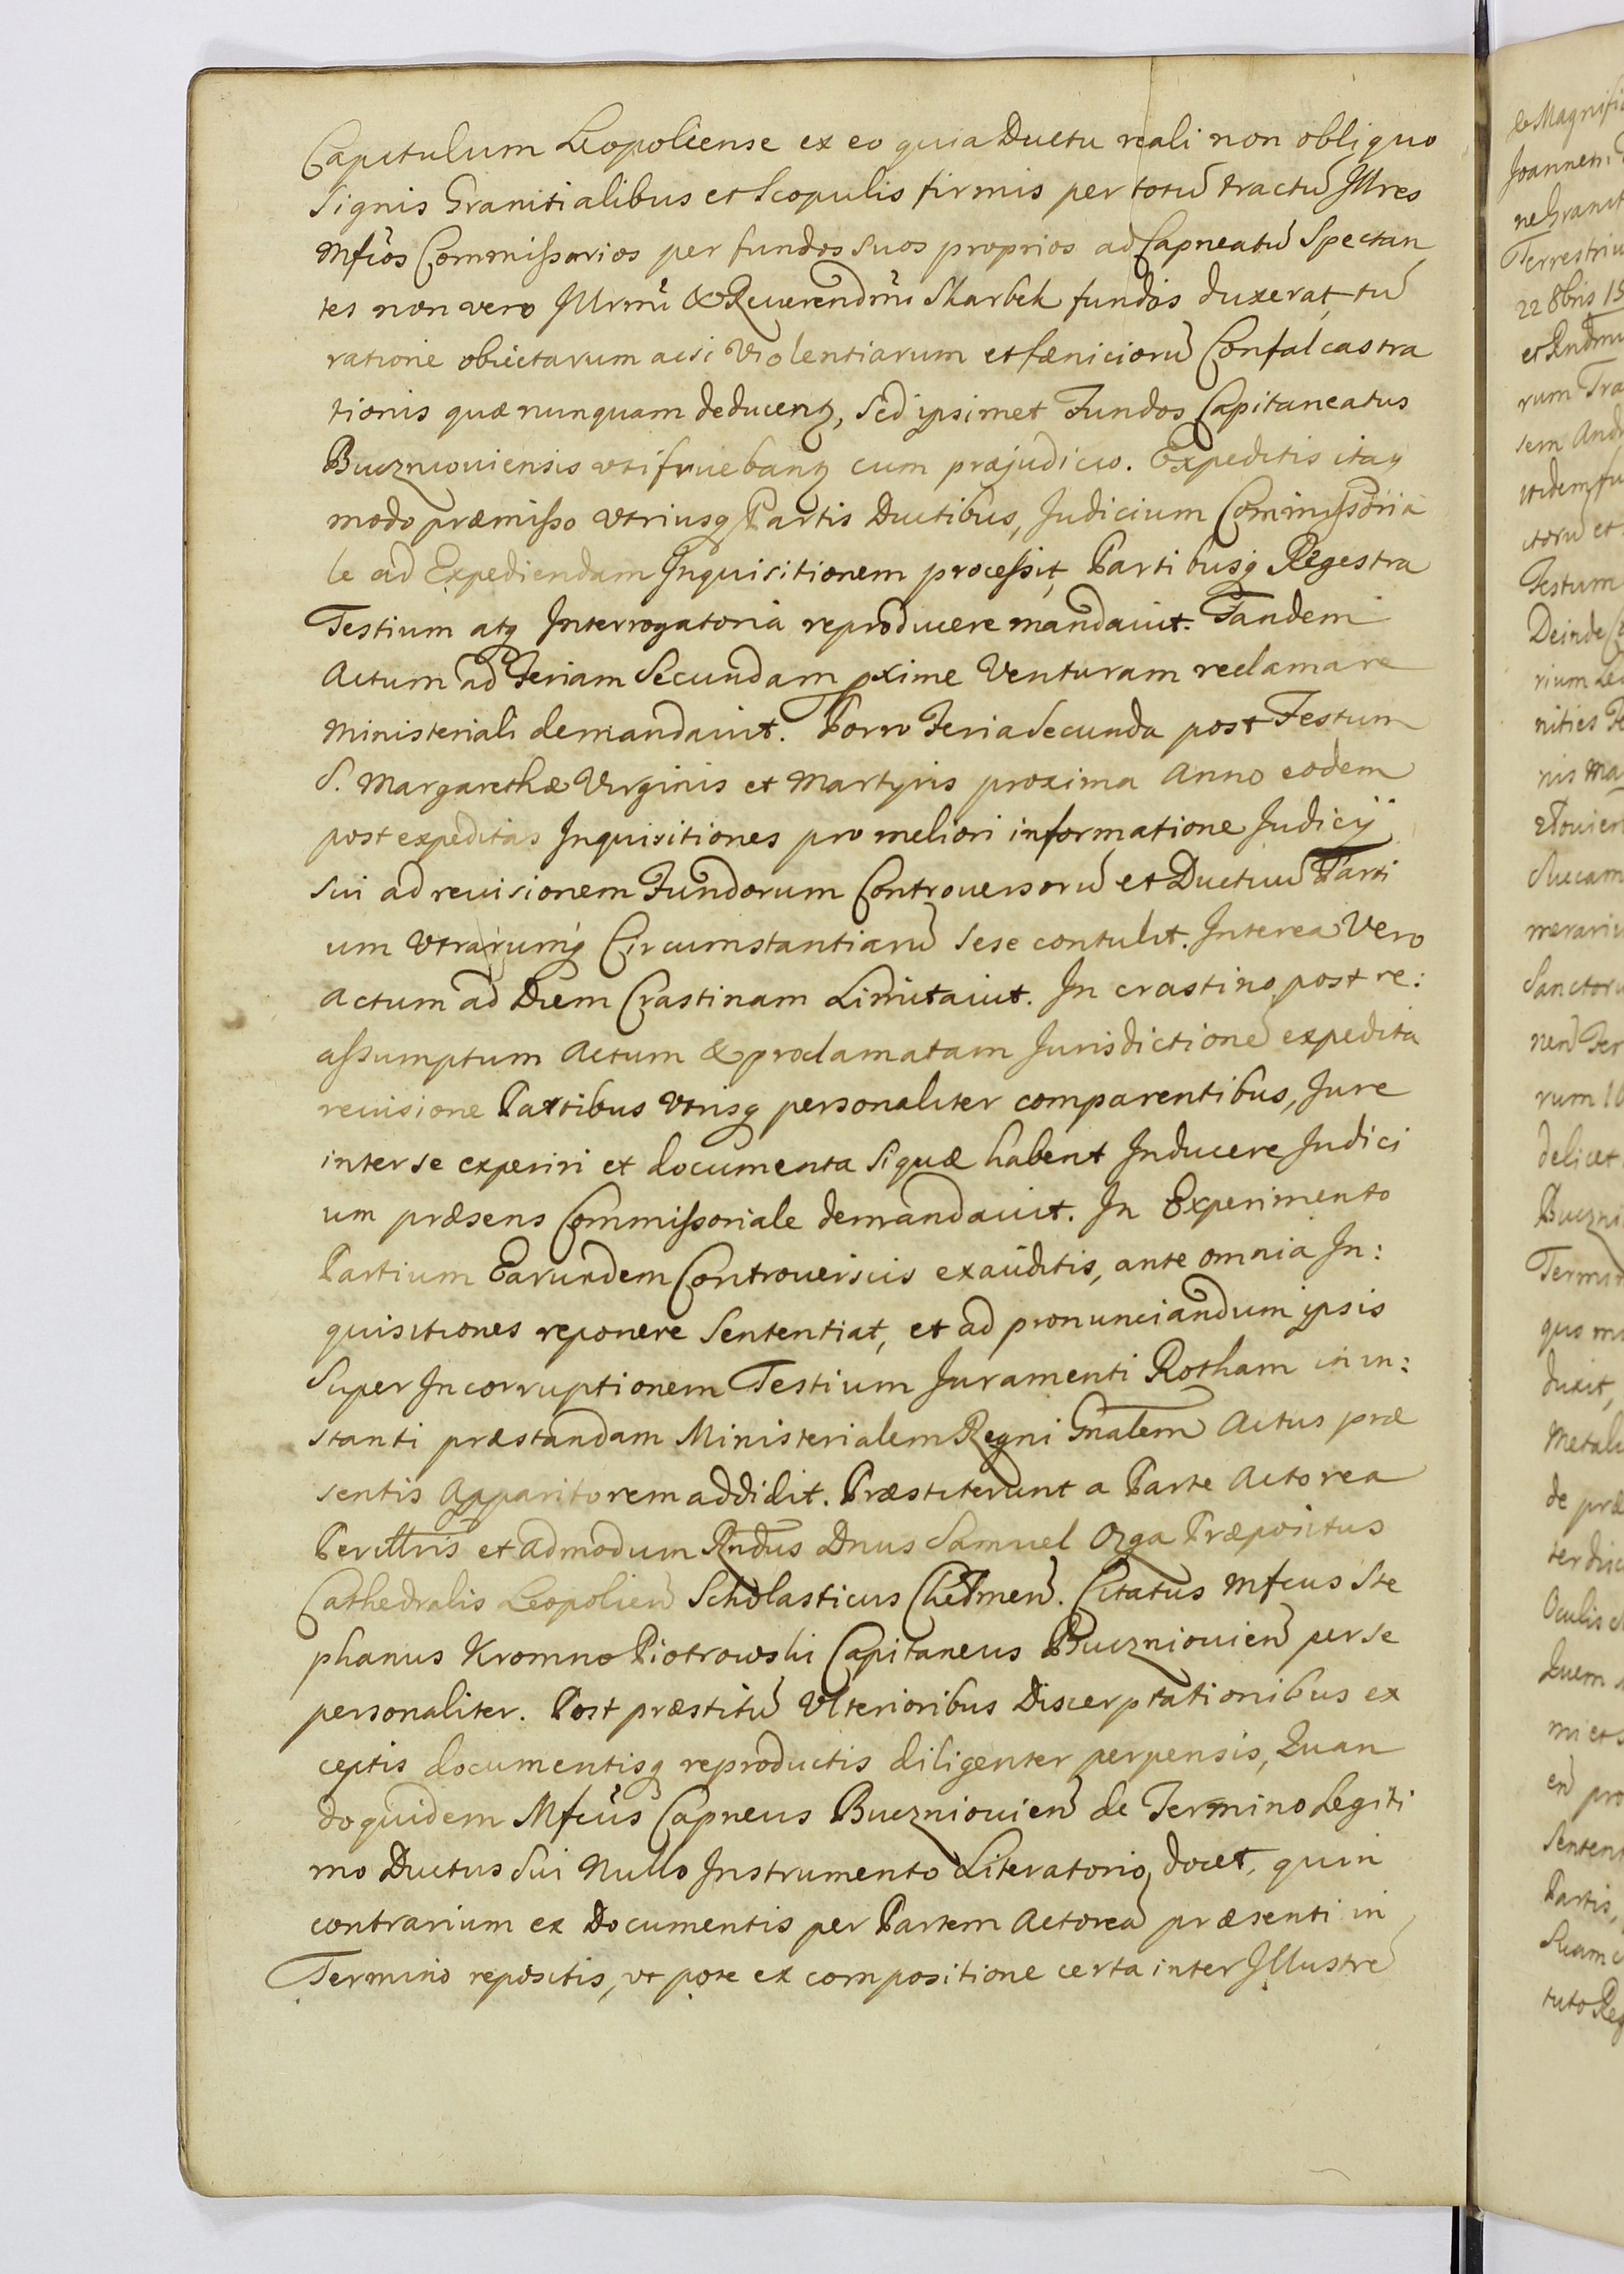 Capitulum Leopoliense ex eo quia Ductu reali non obliquo
Signis Granitialibus et Scopulis firmis per totū tractū Illres
Mfcos Commissarios per fundos suos proprios ad Capneatū Spectan
tes non vero Illrmi & Reuerendmi Skarbek fundos duxerat, tū
ratione obiectarum acsi Violentiarum et fæniciorū Confalcastra
tionis quæ nunquam deducentʒ, sed ipsimet Fundos Capitaneatus
Buczniouiensis vti fruebantʒ cum præjudicio. Expeditis itaq
modo præmisso vtriusq Partis Ductibus, Judicium Commissoria
le ad Expediendam Inquisitionem processit, Partibusq Regestra
Testium atq Interrogatoria reproducere mandauit. Tandem
Actum ad Feriam Secundam pxime Venturam reclamare
Ministeriali demandauit. Porro Feria Secunda post Festum
S. Margarethæ Virginis et Martyris proxima Anno eodem
post expeditas Inquisitiones pro meliori informatione Judicij
sui ad reuisionem Fundorum Controuersorū et Ductuū Parti
um vtrarumq Circumstantiarū sese contulit. Interea Vero
Actum ad Diem Crastinam Limitauit. In crastino post re:
assumptum Actum & proclamatam Jurisdictionē expedita
reuisione Partibus vtrisq personaliter comparentibus, Jure
inter se experiri et documenta si quæ habent Inducere Judici
um præsens Commissoriale demandauit. In Experimento
Partium Earundem Controuersiis exauditis, ante omnia In:
quisitiones reponere sententiat, et ad pronunciandum ipsis
Super Incorruptionem Testium Juramenti Rotham in in:
stanti præstandam Ministerialem Regni Gnalem Actus præ
sentis Apparitorem addidit. Præstiterunt a Parte Actorea
Perillris et admodum Rndus Dnus Samuel Ozga Præpositus
Cathedralis Leopolien̄ Scholasticus Chelmen̄. Citatus Mfcus Ste
phanus Kromno Piotrowski Capitaneus Buczniouien̄ per se
personaliter. Post præstitū Vlterioribus Discerptationibus ex
ceptis documentisq reproductis diligenter perpensis, Quan
doquidem Mfcus Capneus Buczniouien̄ de Termino Legiti
mo Ductus sui Nullo Instrumento Literatorio docet, quin
contrarium ex Documentis per Partem Actoreā præsenti in
Termino repositis, vt pote ex compositione certa inter Illustrē